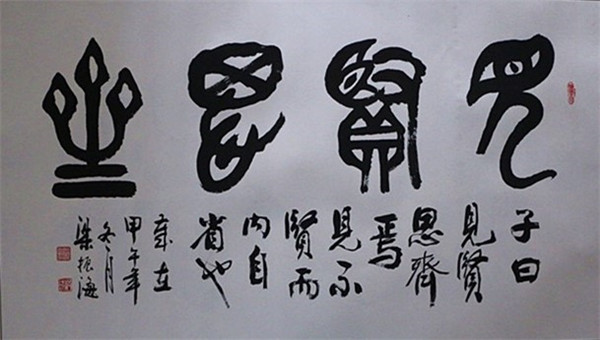 見賢思齊
子曰
見賢
思齊
焉
見不
賢而
内自
省也
歲在
甲午年
冬月
梁振